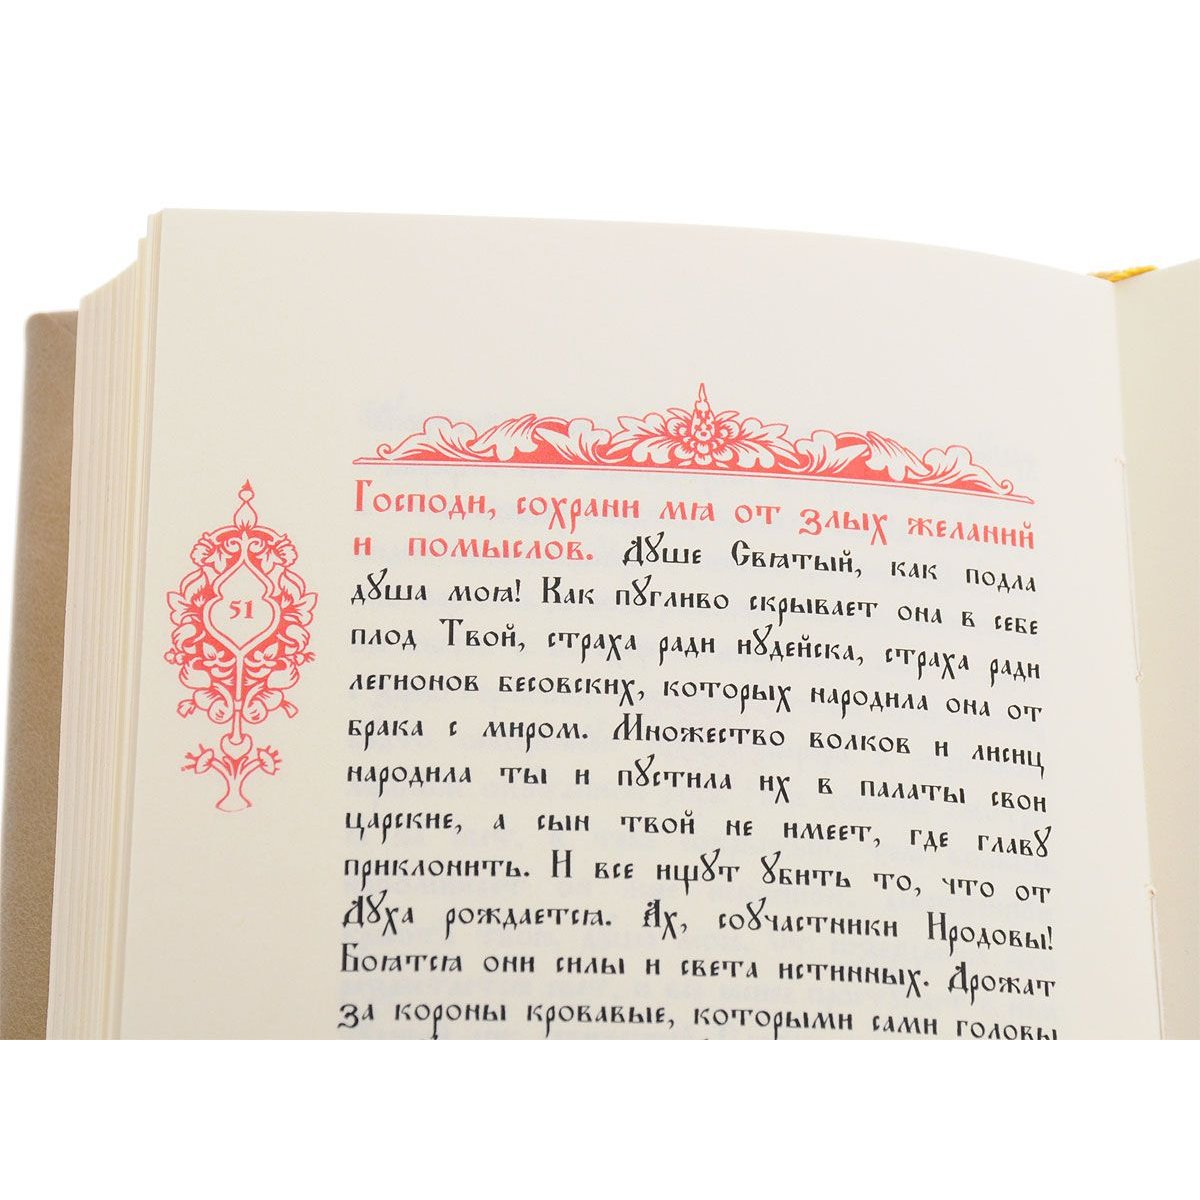 51
Господи, сохрани мѧ от злых желаний
и помыслов. Дꙋше Свѧтый, как подла
дꙋша моѧ! Как пꙋгливо скрывает она в себе
плод Твой, страха ради иꙋдейска, страха ради
легионов бесовских, которых народила она от
брака с миром. Множество волков и лисиц
народила ты и пꙋстила их в палаты свои
царские, а сын твой не имеет, где главꙋ
приклонить. И все ищꙋт ꙋбить то, что от
Дꙋха рождаетсѧ. Ах, соꙋчастники Иродовы!
Боѧтсѧ они силы и света истинных. Дрожат
за короны кровавые, которыми сами головы